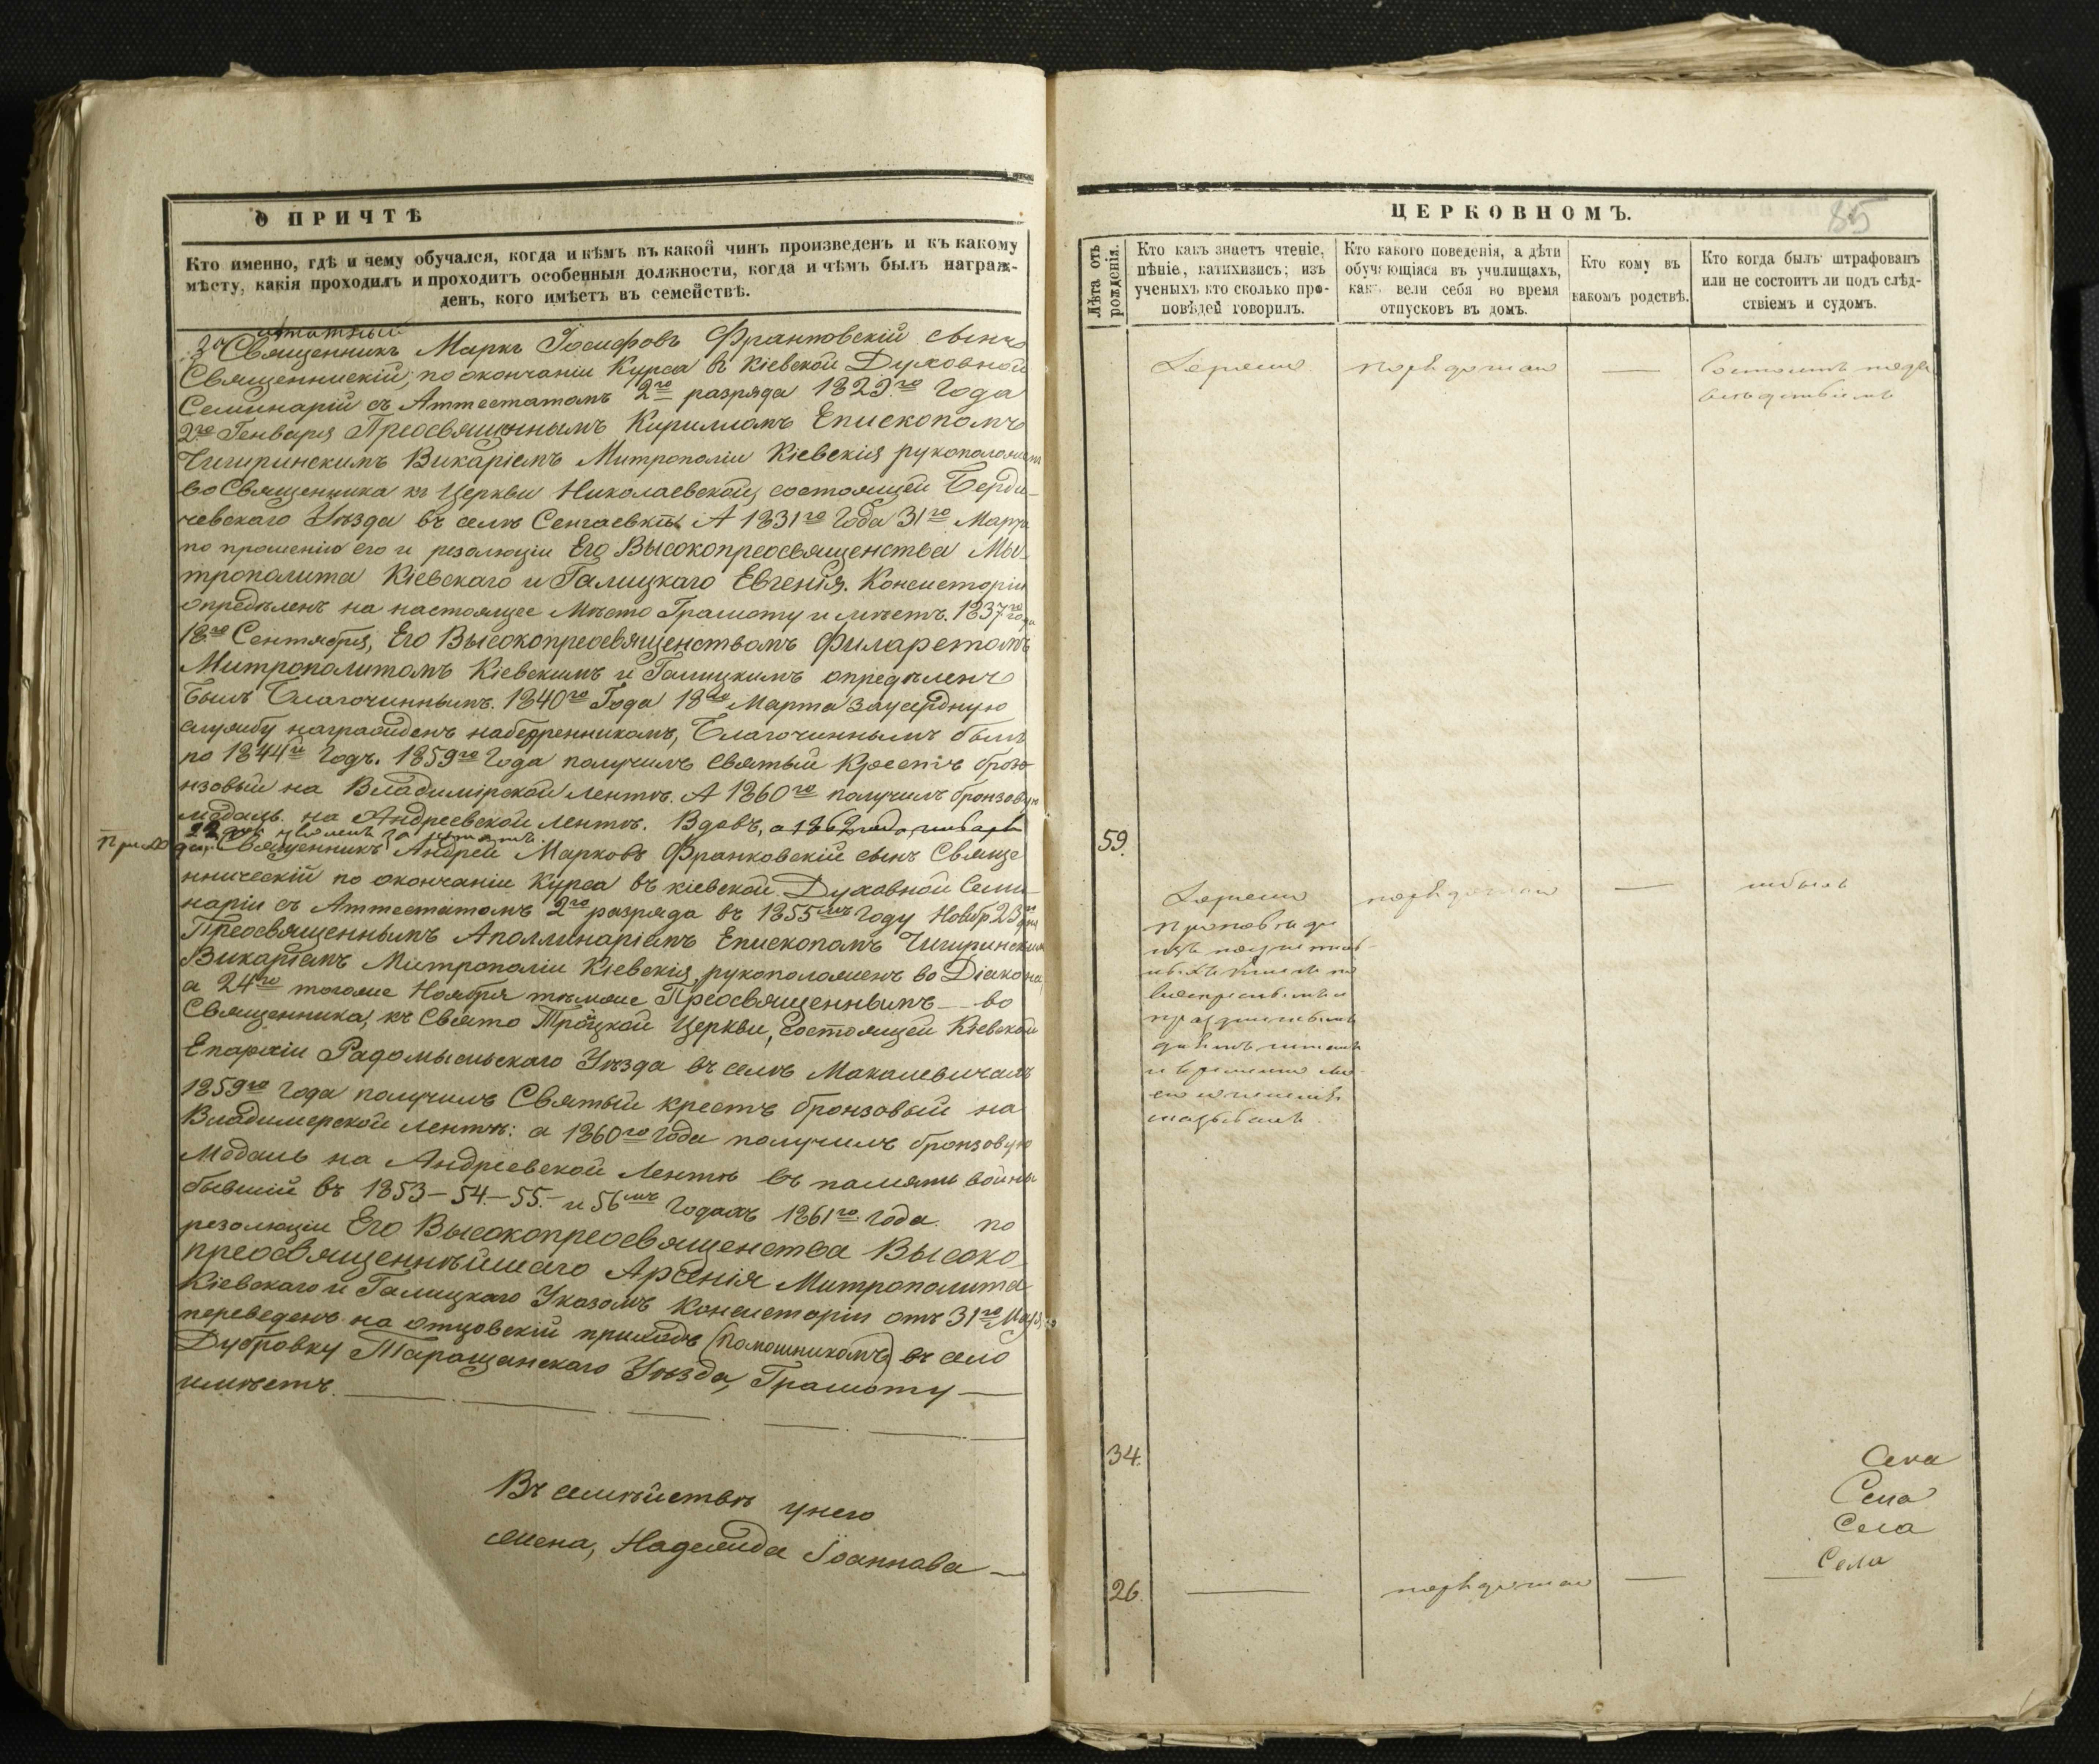 О ПРИЧТѢ
Кто именно, гдѣ и чему обучался, когда и кѣмъ въ какой чинъ произведенъ и къ какому
мѣсту, какія проходилъ и проходитъ особенныя должности, когда и чѣмъ былъ награж-
денъ, кого имѣетъ въ семействѣ.
заштатный
Священникъ Маркъ Іосифовъ Франковскій сынъ
Священническій; по окончаніи Курса въ Кіевской Духовной
Семинаріи съ Аттестатомъ 2го разряда 1829го Года
2го Генваря Преосвященнымъ Кирилломъ Епископомъ
Чигиринскимъ Викаріемъ Митрополіи Кіевскія рукоположенъ
во Священника къ Церкви Николаевской, состоящей Берди-
чевскаго Уѣзда въ селѣ Сенгаевкѣ. А 1831го Года 31го Марта
по прошенію его и резолюціи Его Высокопреосвященства Ми-
трополита Кіевскаго и Галицкаго Евгенія. Консисторіи
опредѣленъ на настоящее Мѣсто Грамоту имѣетъ. 1837го года
18го Сентября, Его Высокопреосвященствомъ Филаретомъ
Митрополитомъ Кіевскимъ и Галицкимъ опредѣленъ
былъ Благочиннымъ. 1840го Года 18го Марта за усердную
службу награжденъ набедренникомъ, Благочиннымъ былъ
по 1844й Годъ. 1859го Года получилъ Святый Крестъ бро-
нзовый на Владимірской лентѣ. А 1860го получилъ бронзовую
мѣдаль на Андреевской лентѣ. Вдовъ, а 1862 года, января
22 дня уволенъ за штатъ.
Священникъ Андрей Марковъ Франковскій сынъ Свяще
нническій по окончаніи Курса въ кіевской Духовной Семи-
наріи съ Аттестатомъ 2го разряда въ 1855мъ Году Ноябр 23го дня
Преосвященнымъ Аполлинаріемъ Епископомъ Чигиринскимъ
Викаріемъ Митрополіи Кіевскія, рукоположенъ во Діакона
а 24го тогоже Ноября тѣмже Преосвященнымъ во
Священника, къ Свято Троицкой Церкви, состоящей Кіевской
Епархіи Радомысльскаго Уѣзда въ селѣ Макалевичахъ
1859го Года получилъ Святый крестъ бронзовый на
Владимерской лентѣ: а 1860го Года получилъ бронзовую
Мѣдаль на Андреевской Лентѣ въ память войны
бывшій въ 1853–54.–55.– и 56мъ Годахъ 1861го Года. по
резолюціи Его Высокопреосвященства Высоко
преосвященнѣйшаго Арсенія Митрополита
Кіевскаго и Галицкаго Указомъ Консисторіи отъ 31го Мая
переведенъ на отцовскій приходъ (помошникомъ) въ село
Дубровку Таращанскаго Уѣзда, Грамоту
имѣетъ.
Въ семѣйствѣ у него
жена, Надежда Іоаннова
ЦЕРКОВНОМЪ.
85
Лѣта отъ рожденія.
Кто какъ знаетъ чтеніе, пѣніе, катихизисъ; изъ ученыхъ кто сколько проповѣдей говорилъ.
Кто какого поведенія, а дѣти обучающіяся въ училищахъ, какъ вели себя во время отпусковъ въ домъ.
Кто кому въ какомъ родствѣ.
Кто когда былъ штрафованъ или не состоитъ ли подъ слѣдствіемъ и судомъ.
Хорошо
Состоитъ подъ
слѣдствіемъ
59.
Хорошо
34.
Села
Села
Села
Села
26.